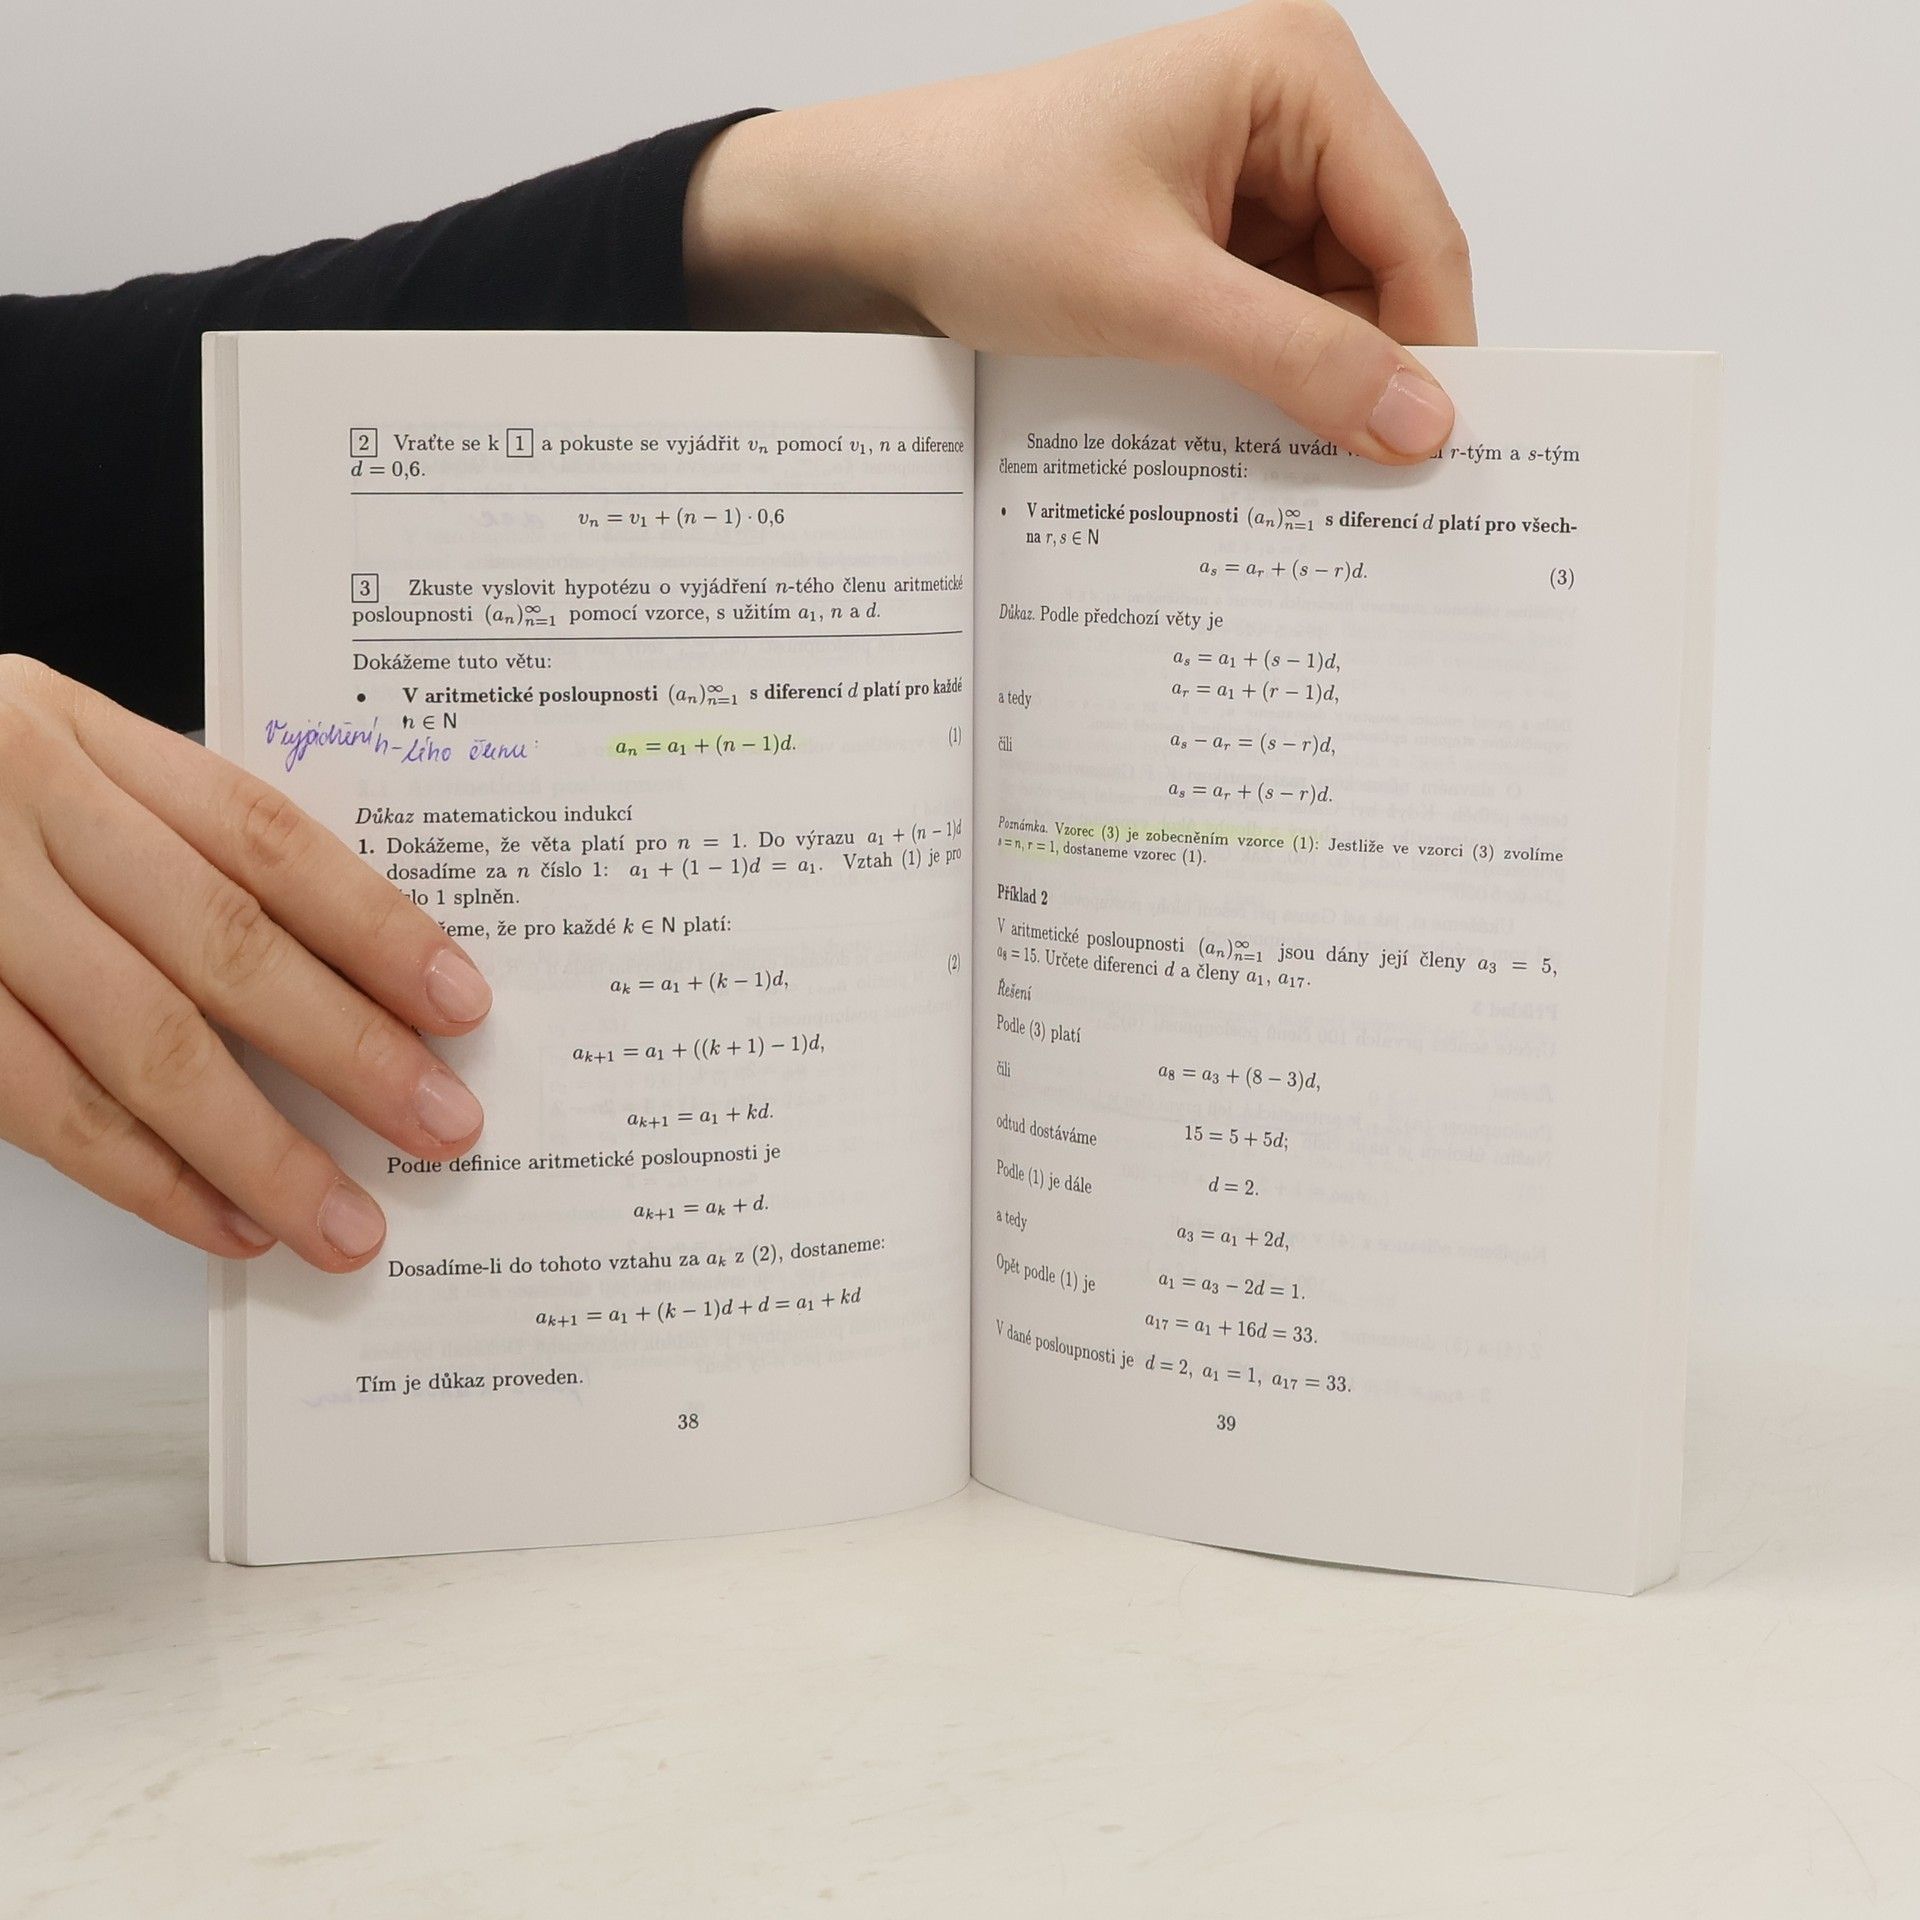 2 Vraťte se k 1 a pokuste se vyjádřit vₙ pomocí v₁, n a diference
d = 0,6.
vₙ = v₁ + (n − 1) · 0,6
3 Zkuste vyslovit hypotézu o vyjádření n-tého členu aritmetické
posloupnosti (aₙ)ₙ₌₁^∞ pomocí vzorce, s užitím a₁, n a d.
Dokážeme tuto větu:
• V aritmetické posloupnosti (aₙ)ₙ₌₁^∞ s diferencí d platí pro každé
n ∈ N
Vyjádření n-tého členu:
aₙ = a₁ + (n − 1)d. (1)
Důkaz matematickou indukcí
1. Dokážeme, že věta platí pro n = 1. Do výrazu a₁ + (n − 1)d
dosadíme za n číslo 1: a₁ + (1 − 1)d = a₁. Vztah (1) je pro
1 splněn.
že pro každé k ∈ N platí:
aₖ = a₁ + (k − 1)d, (2)
aₖ₊₁ = a₁ + ((k + 1) − 1)d,
aₖ₊₁ = a₁ + kd.
Podle definice aritmetické posloupnosti je
aₖ₊₁ = aₖ + d.
Dosadíme-li do tohoto vztahu za aₖ z (2), dostaneme:
aₖ₊₁ = a₁ + (k − 1)d + d = a₁ + kd
Tím je důkaz proveden.
38
Snadno lze dokázat větu, která uvádí r-tým a s-tým
členem aritmetické posloupnosti:
• V aritmetické posloupnosti (aₙ)ₙ₌₁^∞ s diferencí d platí pro všech-
na r, s ∈ N
aₛ = aᵣ + (s − r)d. (3)
Důkaz. Podle předchozí věty je
aₛ = a₁ + (s − 1)d,
aᵣ = a₁ + (r − 1)d,
a tedy
aₛ − aᵣ = (s − r)d,
čili
aₛ = aᵣ + (s − r)d.
Poznámka. Vzorec (3) je zobecněním vzorce (1): Jestliže ve vzorci (3) zvolíme
s = n, r = 1, dostaneme vzorec (1).
Příklad 2
V aritmetické posloupnosti (aₙ)ₙ₌₁^∞ jsou dány její členy a₃ = 5,
a₈ = 15. Určete diferenci d a členy a₁, a₁₇.
Řešení
Podle (3) platí
a₈ = a₃ + (8 − 3)d,
čili
15 = 5 + 5d;
odtud dostáváme
d = 2.
Podle (1) je dále
a₃ = a₁ + 2d,
a tedy
a₁ = a₃ − 2d = 1.
Opět podle (1) je
a₁₇ = a₁ + 16d = 33.
V dané posloupnosti je d = 2, a₁ = 1, a₁₇ = 33.
39